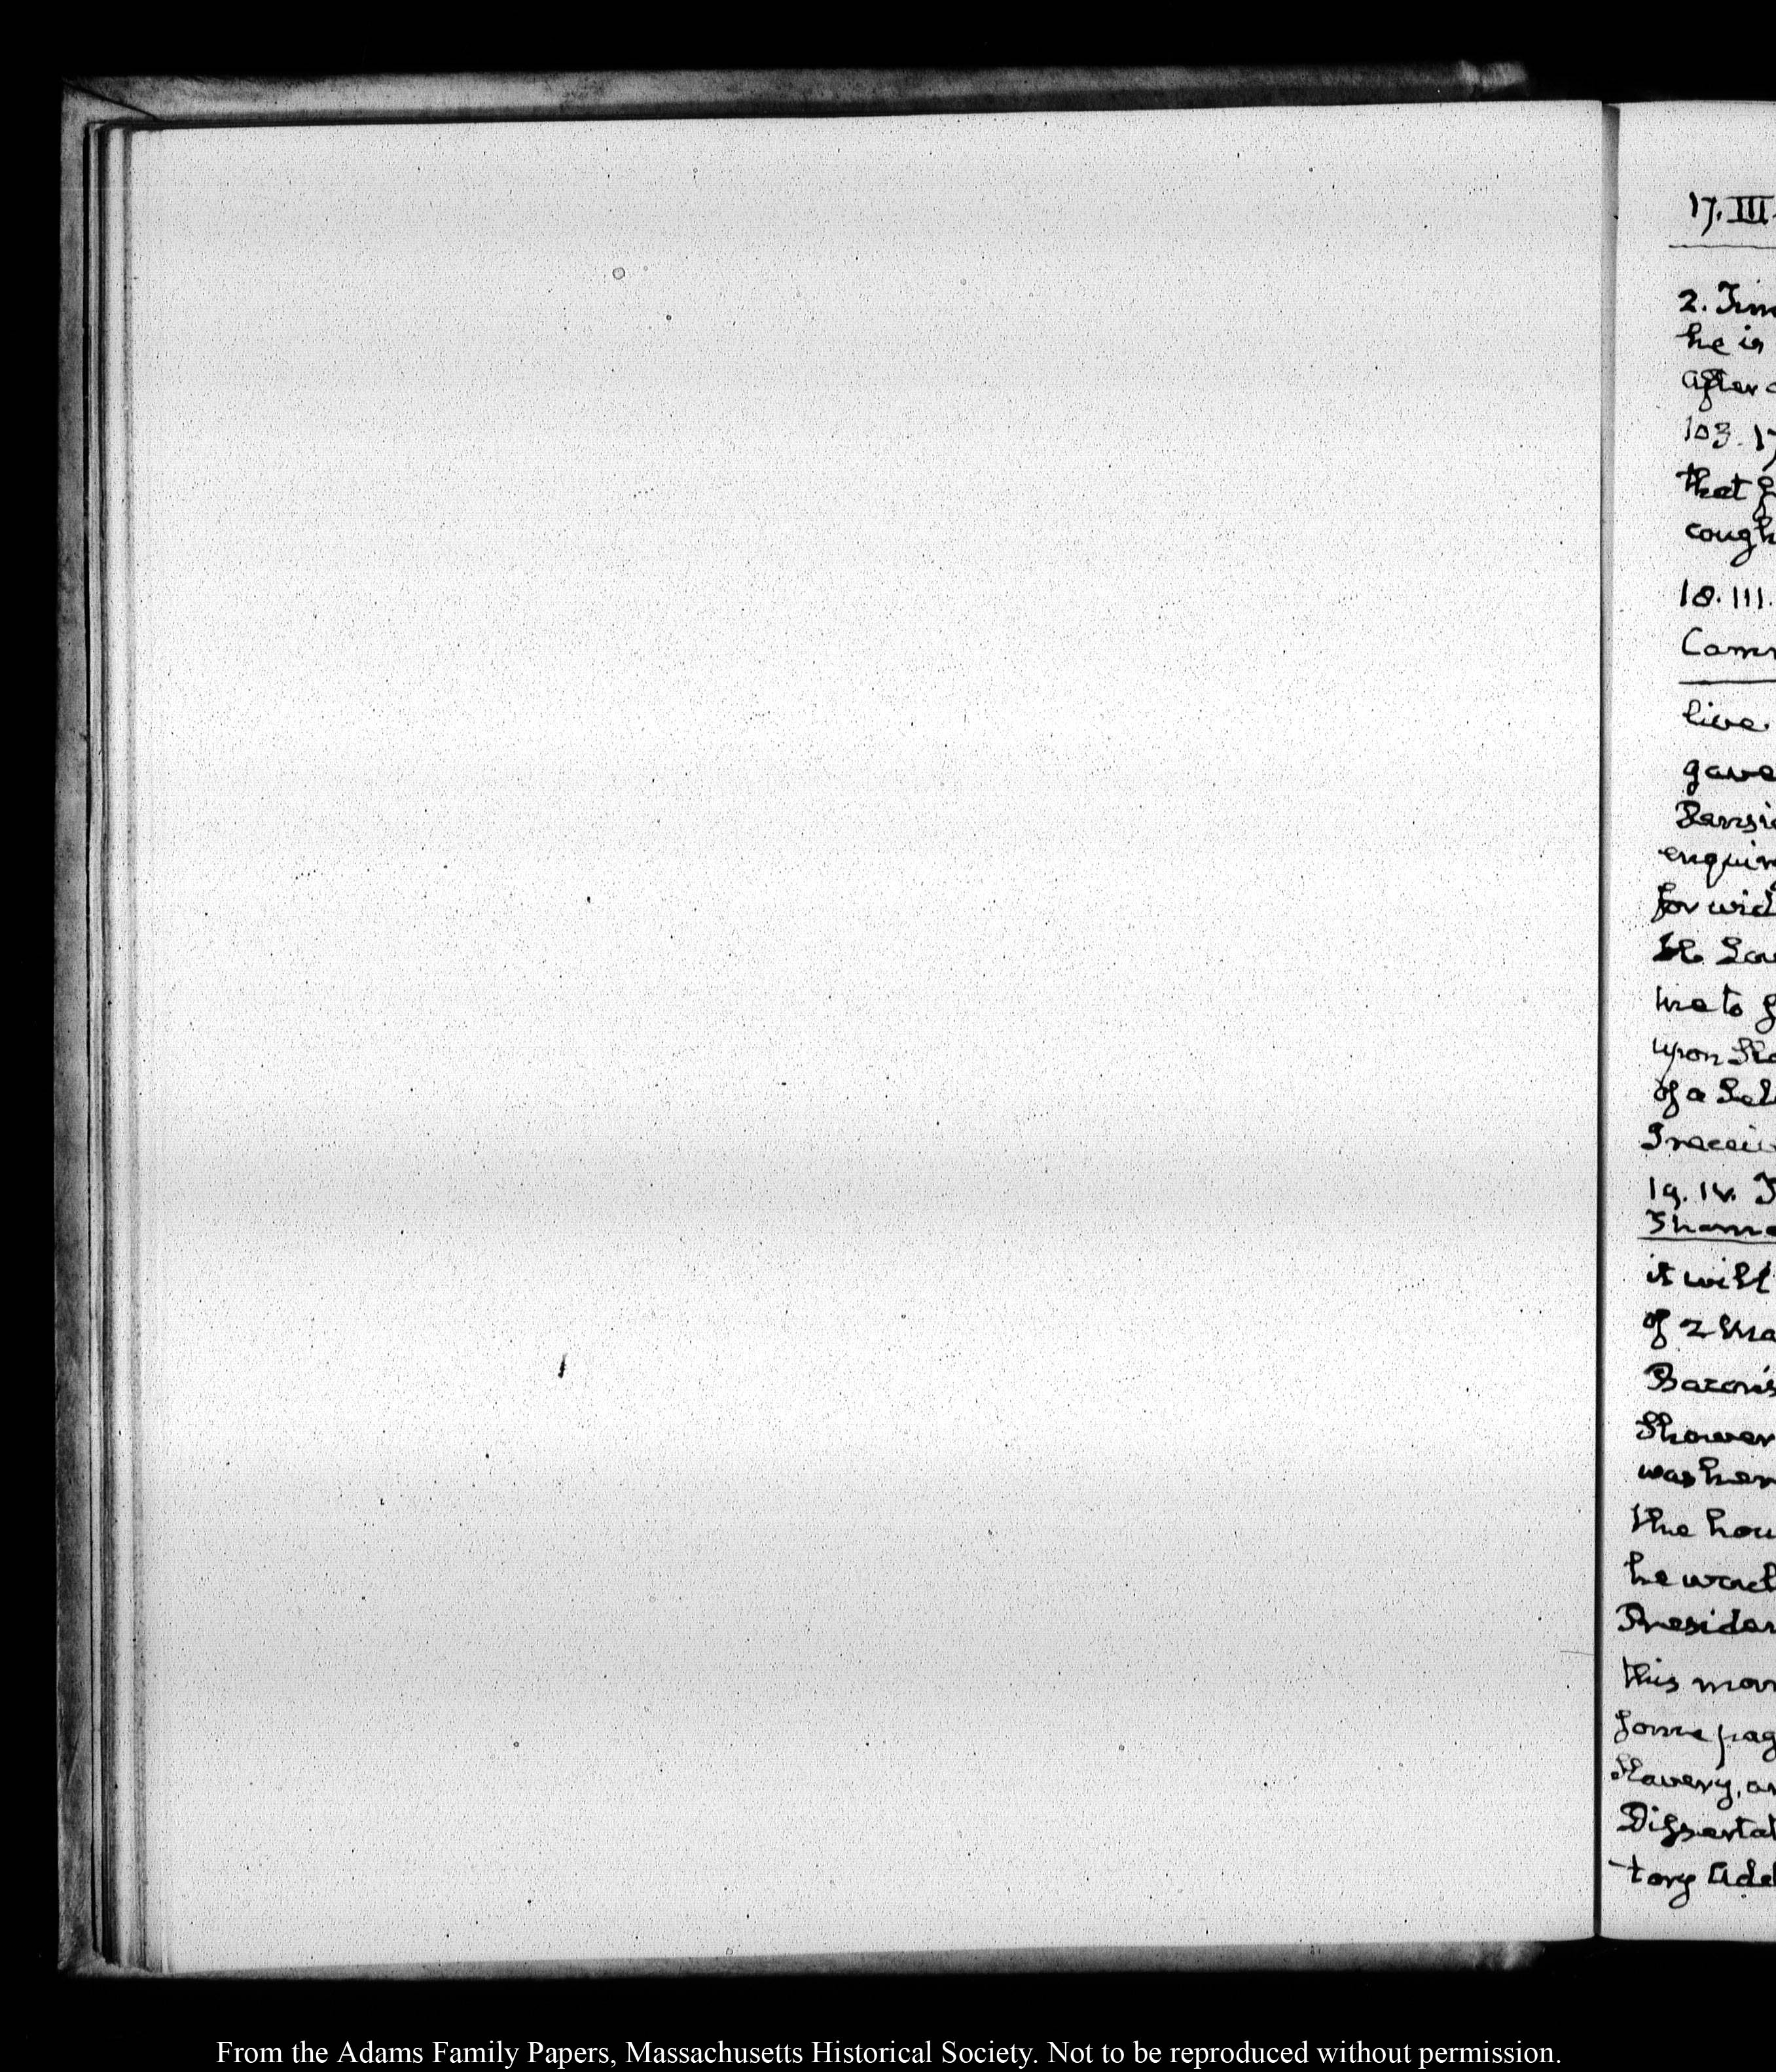 17. III.
2. Tim
he is
after
103. 17
that
cough
18. III.
Com
live
gave
Pensi
enquir
for wid
me to
upon
of a Sel
I recei
19. IV. T
it will
of 2
Bacon's
Shower
was her
the hou
he
Presiden
this mor
some pag
Slavery, an
Dissertat
-tory Add
From the Adams Family Papers, Massachusetts Historical Society. Not to be reproduced without permission.